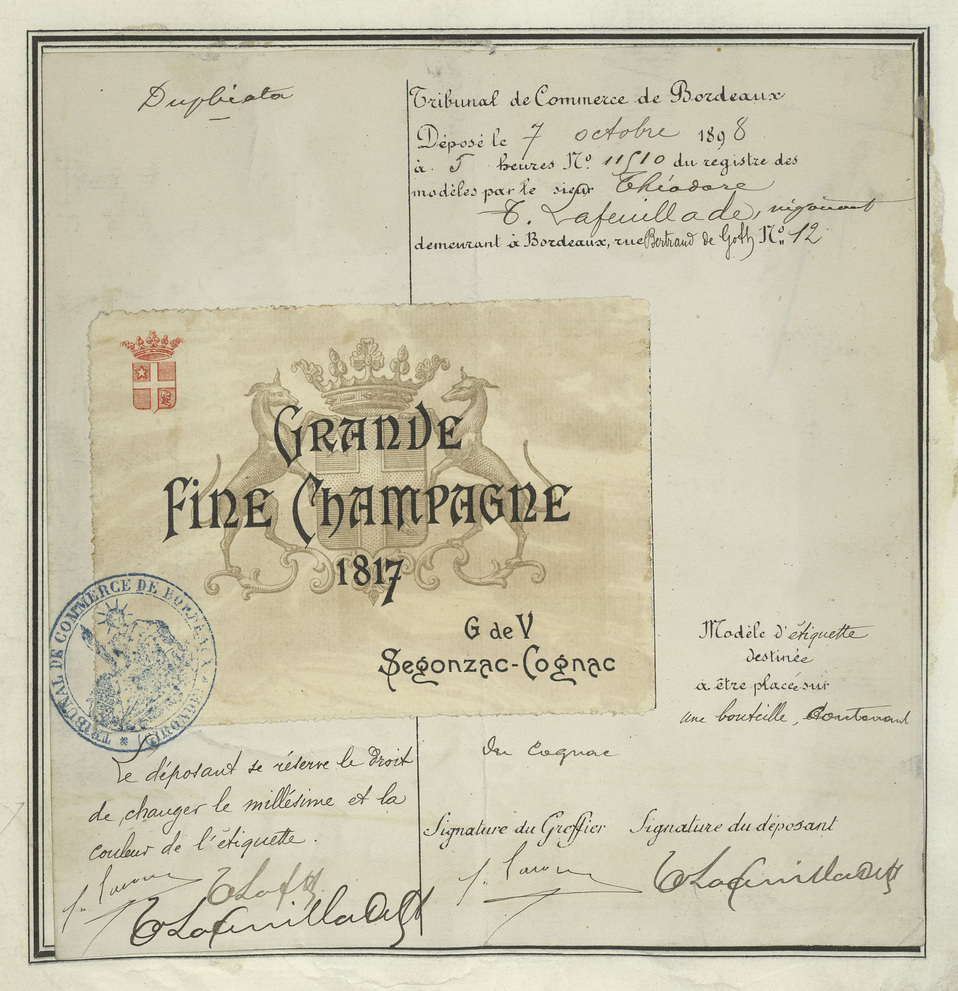 Duplicata
Tribunal de Commerce de Bordeaux
Déposé le 7 octobre 1898
à 5 heures No 11510 du registre des
modèles par le sieur Théodore
T. Lafeuillade,
demeurant à Bordeaux, rue Bertrand de Goth No 12
GRANDE
FINE CHAMPAGNE
1817
G de V
Segonzac-Cognac
TRIBUNAL DE COMMERCE DE BORDEAUX (GIRONDE)
Modèle d'étiquette
destinée
à être placée sur
une bouteille, contenant
du cognac
Le déposant se réserve le droit
de changer le millésime et la
couleur de l'étiquette.
Signature du Greffier Signature du déposant
TLafeuillade
TLafeuillade